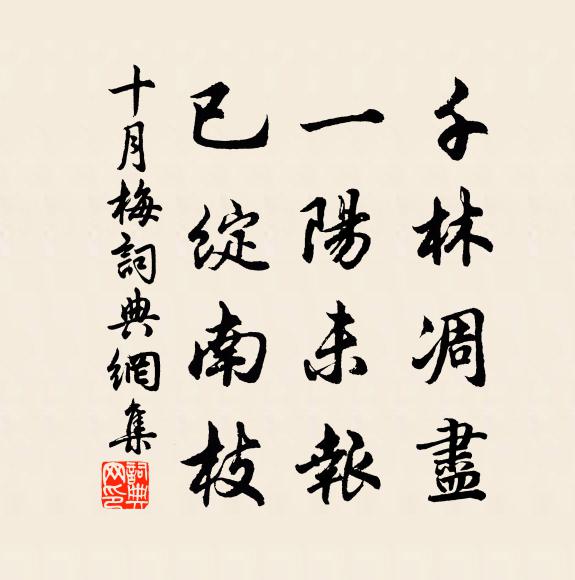 千林凋盡
一陽未報
已綻南枝
十月梅詞典網集
詞典
网印